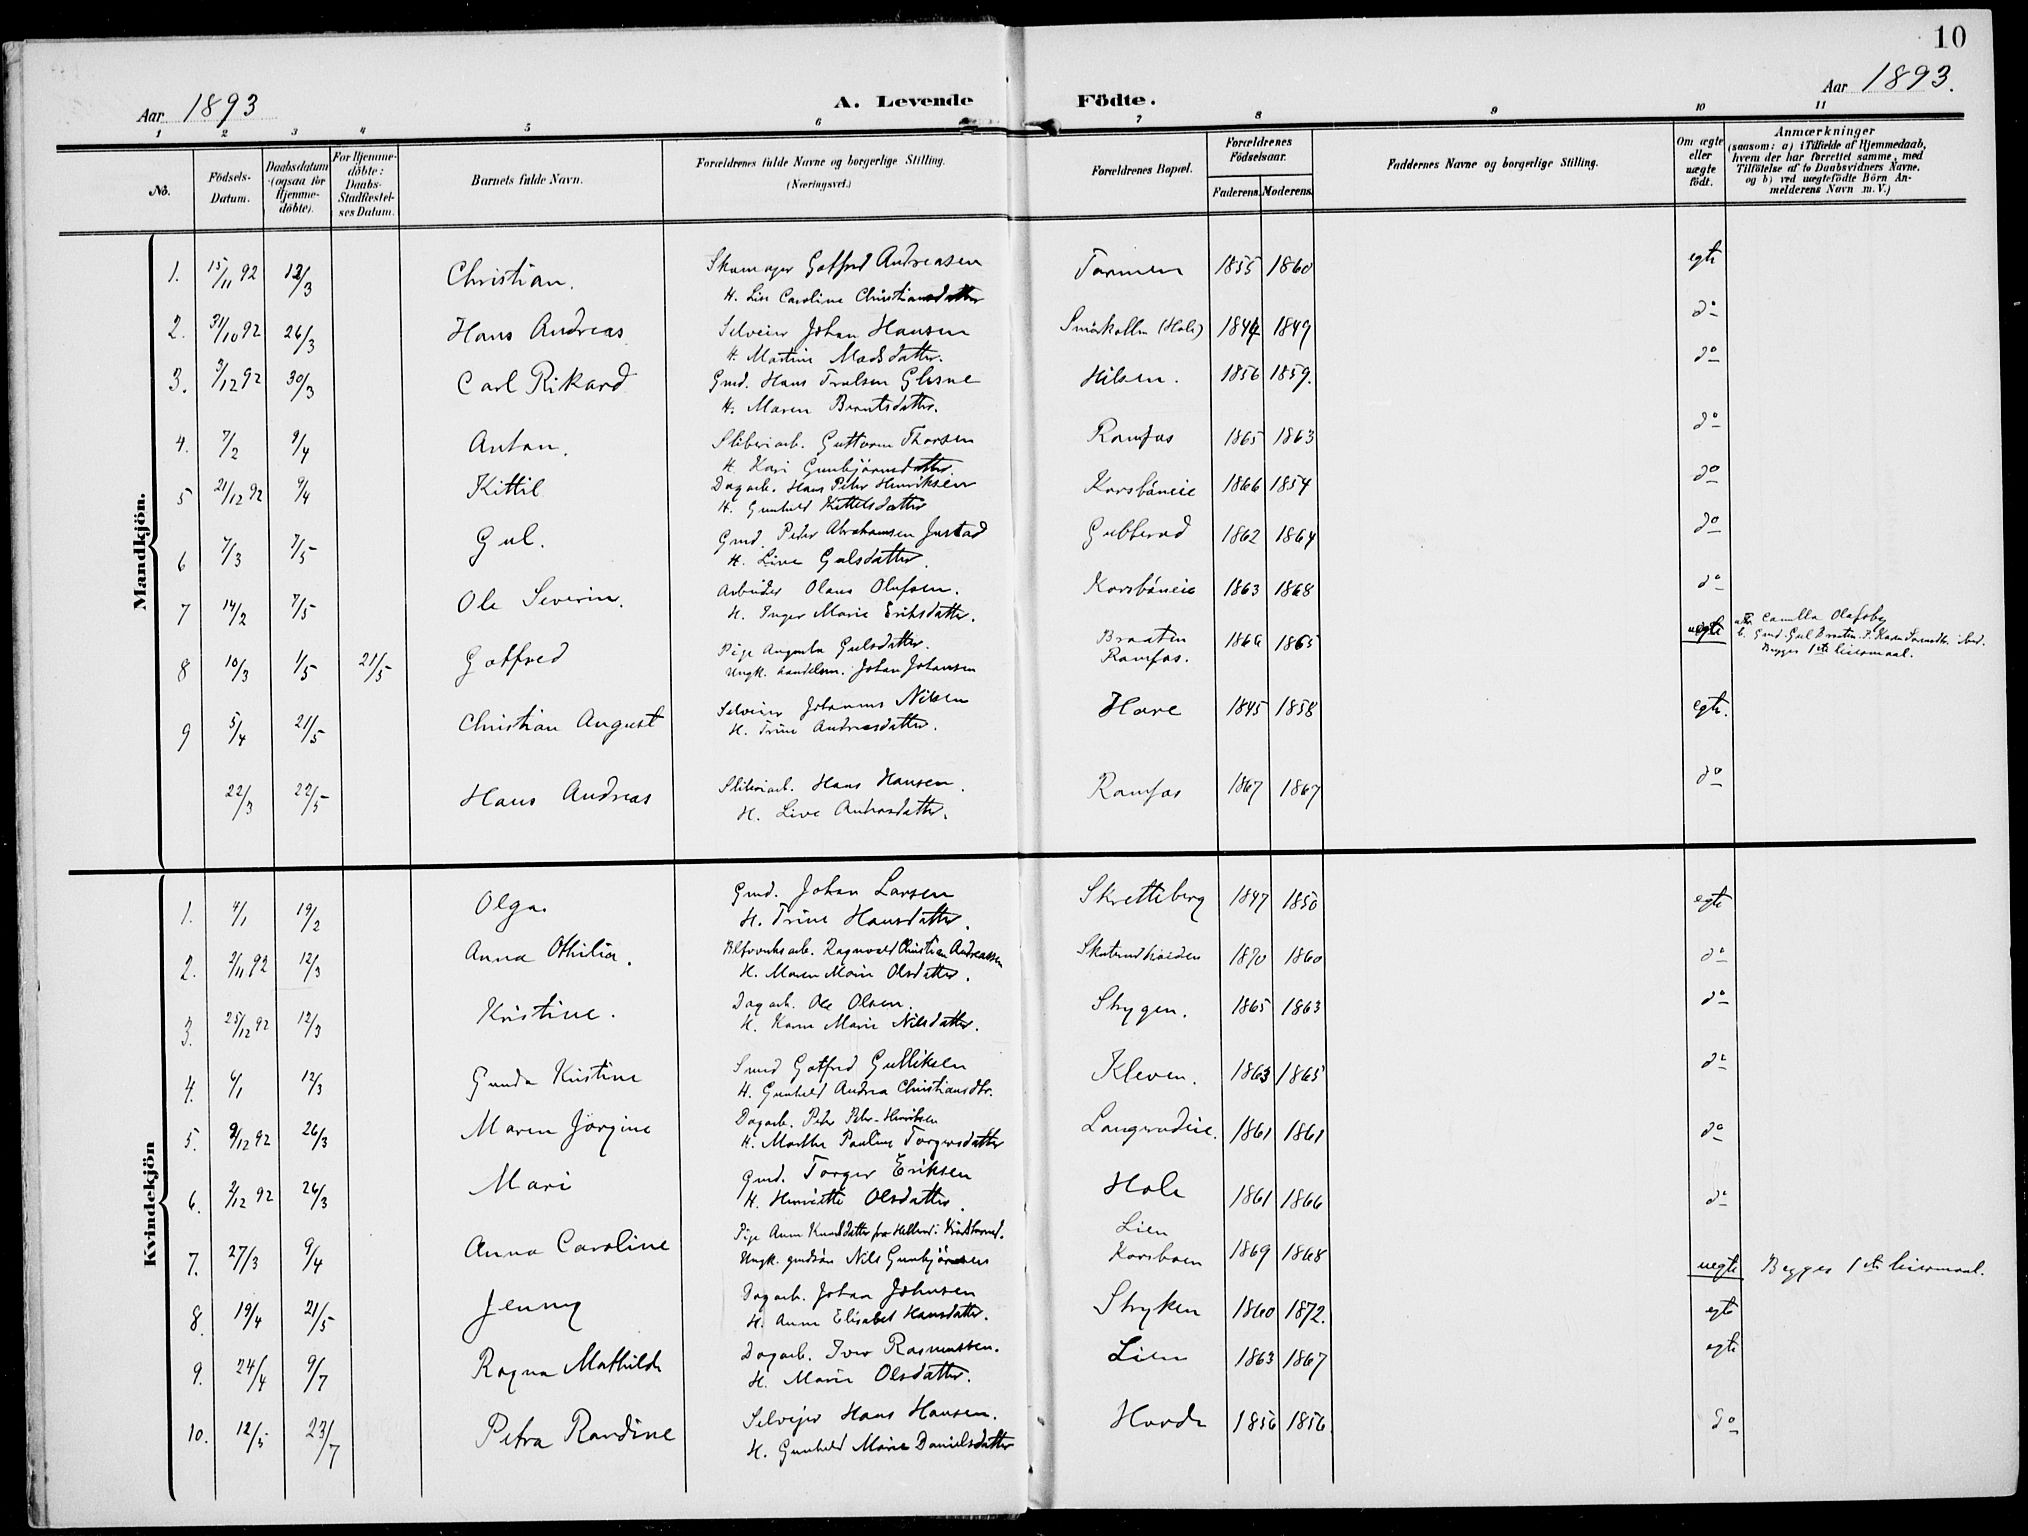 10
Aar 1893
A. Levende Födte.
Aar 1893.
1 2 3 4 5 6 7 8 9 10 11
No.
Födsels-Datum.
Daabsdatum (ogsaa för Hjemme-döbte).
For Hjemme-döbte: Daabs-Stadfæstel-ses Datum.
Barnets fulde Navn.
Forældrenes fulde Navne og borgerlige Stilling. (Næringsvei.)
Forældrenes Bopæl.
Forældrenes Födselsaar.
Faderens. Moderens.
Faddernes Navne og borgerlige Stilling.
Om ægte eller uægte födt.
Anmærkninger (saasom: a) i Tilfælde af Hjemmedaab, hvem der har forrettet samme, med Tilföielse af to Daabsvidners Navne, og b) ved uægtefödte Börn An-melderens Navn m. V.)
Mandkjön.
1. 15/11 92 12/3 Christian. Skomager Gotfred Andreasen Tormen 1855 1860 egte
H. Lise Caroline Christiansdatter
2. 31/10 92 26/3 Hans Andreas Selveier Johan Hansen (Hole) 1844 1849 do
H. Martine Madsdatter.
3. 3/12 92 30/3 Carl Rikard Gmd. Hans Trulsen Glesne Hilsen. 1856 1859. do
H. Maren Berntsdatter.
4. 7/2 9/4 Anton. Sliberiarb. Guttorm Thorsen Ramfos 1865 1863 do
H. Kari Gunbjörnsdatter.
5 21/12 92 9/4 Kittil Dagarb. Hans Peter Henriksen Korsböneie 1866 1854 do
H. Gunhild Kittelsdatter
6 7/3 7/5 Gul. Gmd. Peder Abrahamsen Justad Gubberud 1862 1864 do
H. Live Gulsdatter.
7 14/2 7/5 Ole Severin. Arbeider Olaus Olafsen. Korsböneie 1863 1868 do
H. Inger Marie Eriksdatter.
8 10/3 1/5 21/5 Gotfred Pige Augusta Gulsdatter. Braaten 1866 1865 uegte Camilla Olafsby
Ungk. handelsm. Johan Johansen Ramfos. b. Gmd. Gul Braaten
Begges 1ste leiermaal.
9 5/4 21/5 Christian August Selveier Johannes Nilsen Hove 1845 1858 egte.
H. Trine Andreasdatter.
22/3 22/5 Hans Andreas Sliberiarb. Hans Hansen. Ramfos 1867 1867 do
H. Live Andersdatter.
Kvindekjön
1. 4/1 19/2 Olga. Gmd. Johan Larsen Skretteberg 1847 1850 egte
H. Trine Hansdatter.
2. 2/11 92 12/3 Anna Othilia. Blfværksarb. Ragnvald Christian Andreassen 1870 1860 do
H. Maren Marie Olsdatter.
3. 25/12 92 12/3 Kristine. Dagarb. Ole Olsen. Strygen. 1865 1863 do
H. Karen Marie Nilsdatter.
4. 4/1 12/3 Gunda Kristine Smed Gotfred Gulliksen Kleven. 1863 1865 do
H. Gunhild Andrea Christiansdtr.
5. 9/12 92 26/3 Maren Jörgine Dagarb. Peter Peter-Henriksen Langerudeie. 1861 1861 do
H. Marthe Pauline Torgersdatter
6. 2/12 92 26/3 Mari Gmd. Torger Eriksen Hole 1861 1866 do
H. Henriette Olsdatter.
7. 27/3 9/4 Anna Caroline Pige Anne Knudsdatter fra Lien 1869 1868 uegte Begges 1ste leiermaal.
Ungk. gmdsön Nils Gunbjörnsen Korsboen
8. 19/4 21/5 Jenny Dagarb. Johan Johnsen Stryken 1860 1872. egte
H. Anne Elisabet Hansdatter.
9. 24/4 9/7 Ragna Mathilde Dagarb. Iver Rasmussen. Lien 1863 1867 egte
H. Marie Olsdatter.
10. 12/5 23/7 Petra Randine Selvejer Hans Hansen. Hovde 1856 1856 do
H. Gunhild Marie Danielsdatter